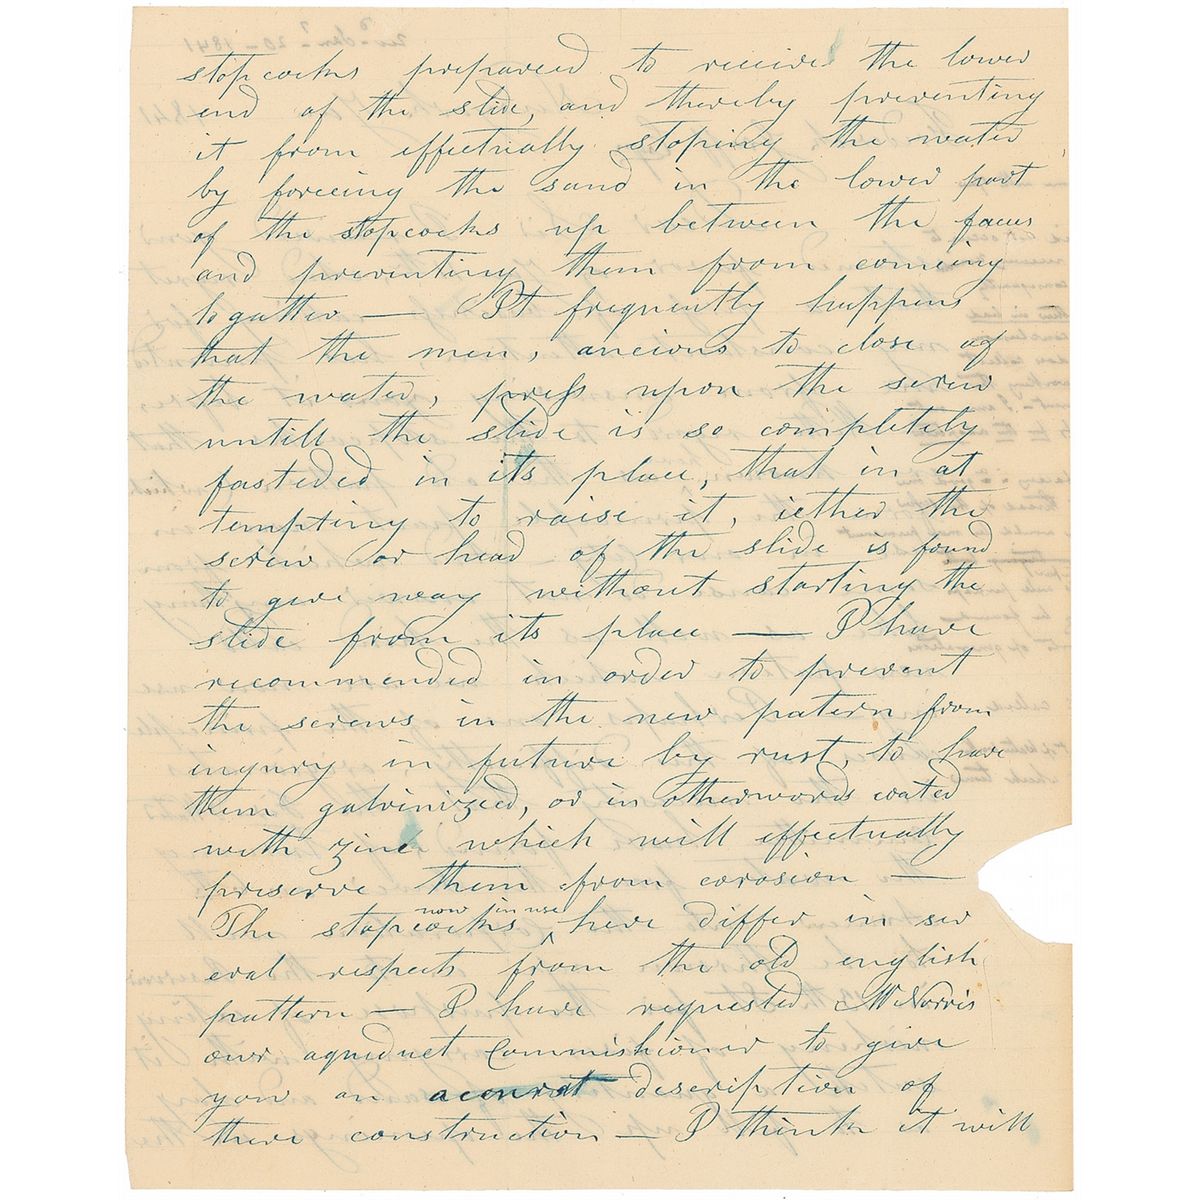 stopcocks prepared to receive the lower
end of the slide, and thereby preventing
it from effectually stoping the water
by forceing the sand in the lower part
of the stopcocks up between the faces
and preventing them from comeing
togatter — It frequently happens
that the men, ancious to close of
the water, press upon the screw
untill the slide is so completely
fasteded in its place, that in at
tempting to raise it, iether the
screw or head of the slide is found
to give way without starting the
slide from its place — I have
recommended in order to prevent
the screws in the new patern from
inqury in future by rust, to have
them galvinized, or in otherwords coated
with zinc which will effectually
preserve them from corosion —
The stopcocks now in use here differ in sev
eral respects from the old english
pattern — I have requested Mr Norris
our aqueduct Commishioner to give
you an accurat description of
there construction — I think it will